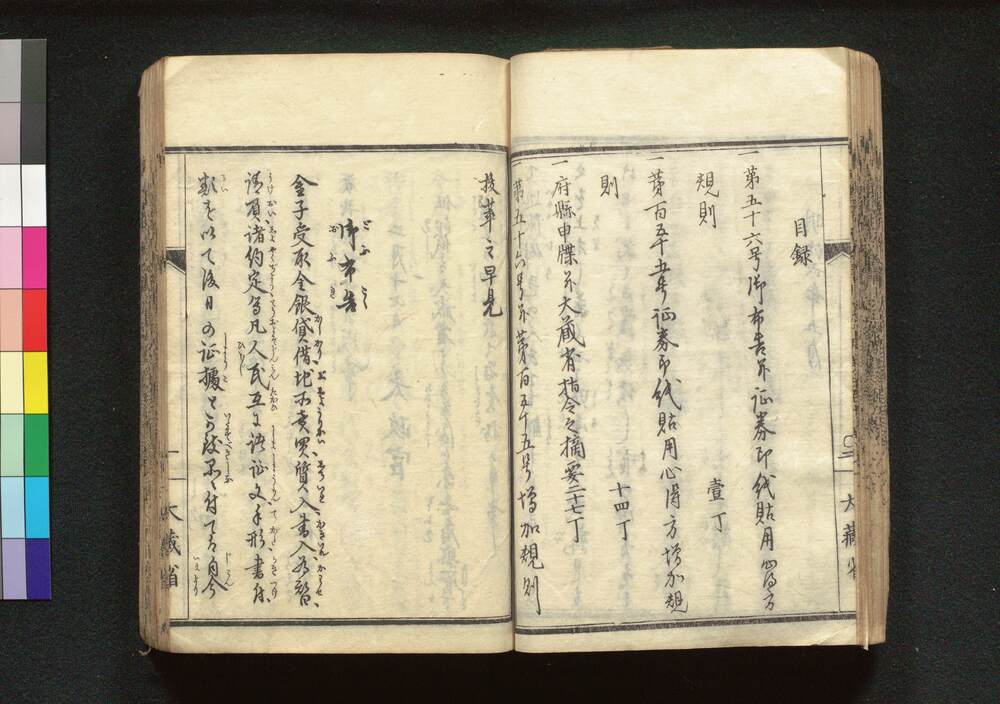 目録
一第五十六号御布告并証券印紙貼用心得方
規則　壹丁
一第百五十五号証券印紙貼用心得方増加規
則　十四丁
一府縣申牒并大蔵省指令之摘要二十七丁
一第五十六号并第百五十五号増加規則
抜萃之早見
御布告
金子受取金銀貸借地所売買質入書入為替
請負諸約定等凡人民互ニ諸証文手形書付
類を以て後日の証據と
大藏省